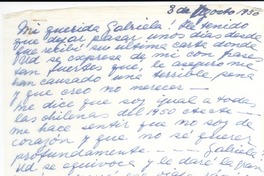 3 de Agosto 1950
Mi querida Gabriela! He tenido
que dejar pasar unos días desde
que recibí su última carta donde
Ud se expresa de mi con frases
tan fuertes que le aseguro me
han causado una terrible pena
y que creo no merecer —
Me dice que soy igual a todas
las chilenas del 1950 etc etc —
me hace sentir que no soy de
corazón y que no sé querer
profundamente — — — Gabriela!
Ud se equivoca y le daré la